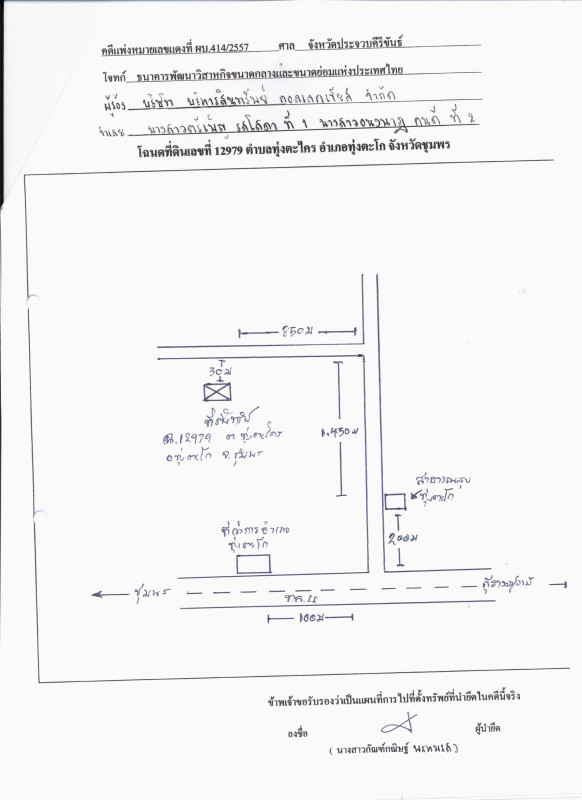 คดีแพ่งหมายเลขแดงที่ ผบ.414/2557 ศาล จังหวัดประจวบคีรีขันธ์
โจทก์ ธนาคารพัฒนาวิสาหกิจขนาดกลางและขนาดย่อมแห่งประเทศไทย
ผู้ร้อง บริษัท บริหารสินทรัพย์ คอลเลคเชียส จำกัด
จำเลย นางสาว ที่ 1 นางสาว ที่ 2
โฉนดที่ดินเลขที่ 12979 ตำบลทุ่งตะไคร อำเภอทุ่งตะโก จังหวัดชุมพร
850ม
30ม
ที่ตั้งทรัพย์
ฉ.12979 ต ทุ่งตะไคร
อ ทุ่งตะโก จ.ชุมพร
1,450ม
สาธารณสุข
ทุ่งตะโก
ที่ว่าการอำเภอ
ทุ่งตะโก
200ม
ชุมพร
สุราษฎร์ธานี
ทล.4
100ม
ข้าพเจ้าขอรับรองว่าเป็นแผนที่การไปที่ตั้งทรัพย์ที่นำยึดในคดีนี้จริง
ลงชื่อ ผู้นำยึด
( นางสาวกัณฑ์กณิษฐ์ )